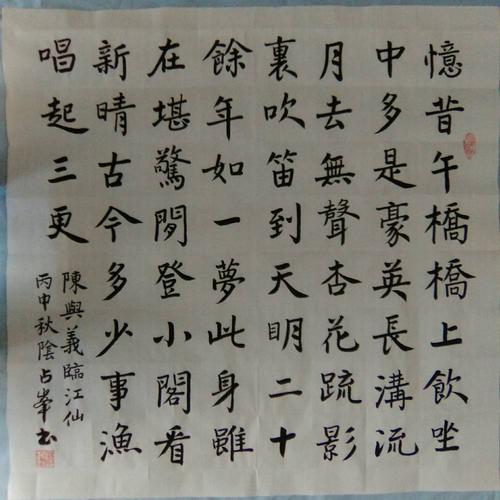 憶昔午橋橋上飲坐
中多是豪英長溝流
月去無聲杏花疏影
裏吹笛到天明二十
餘年如一夢此身雖
在堪驚閒登小閣看
新晴古今多少事漁
唱起三更
陳與義臨江仙
丙申秋陰占峯书